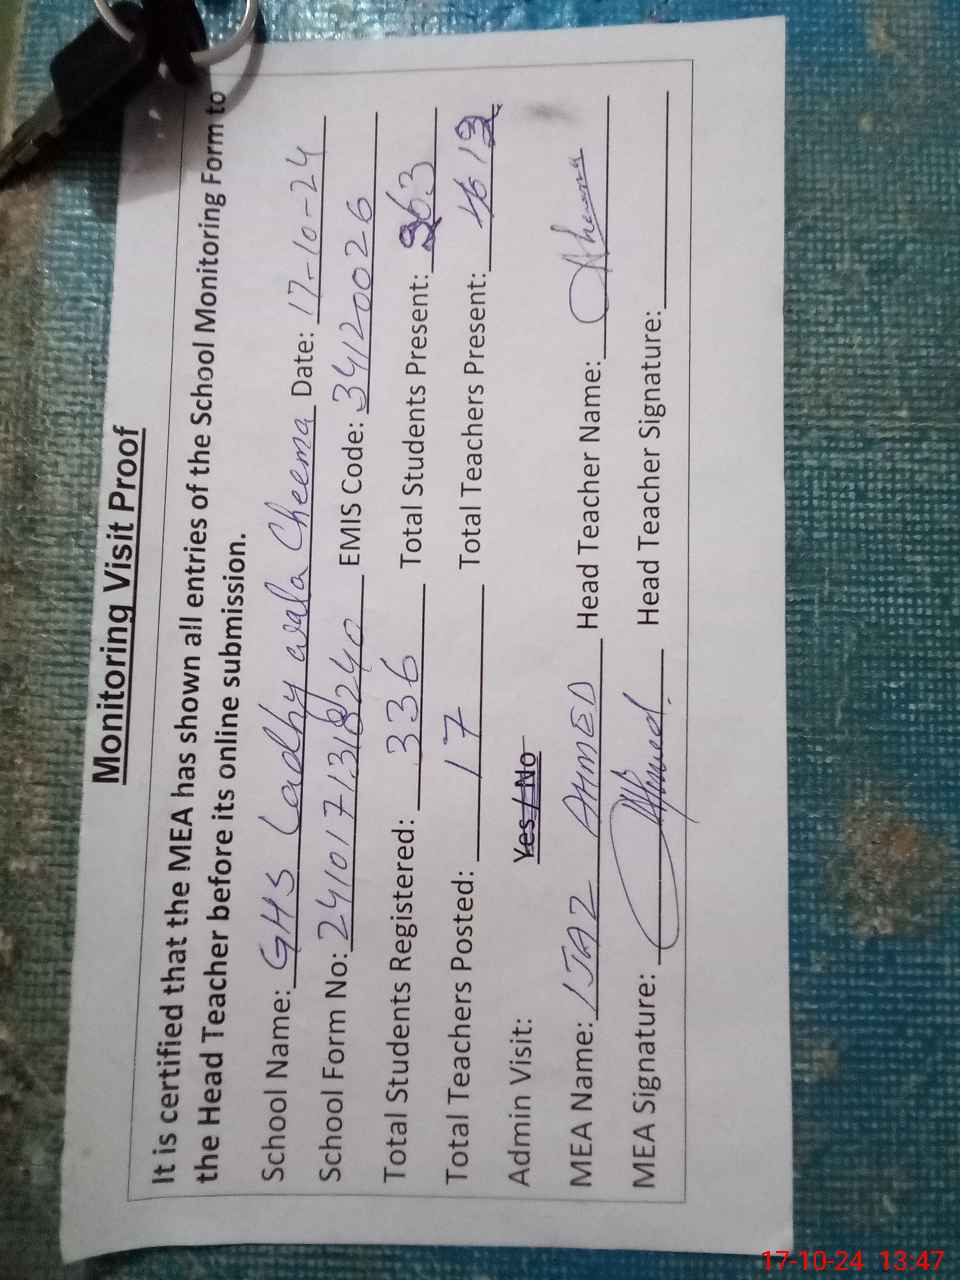 Monitoring Visit Proof
It is certified that the MEA has shown all entries of the School Monitoring Form to
the Head Teacher before its online submission.
School Name: GHS Ladhy wala Cheema Date: 17-10-24
School Form No: 2410171318240 EMIS Code: 34120026
Total Students Registered: 336 Total Students Present: 263
Total Teachers Posted: 17 Total Teachers Present:
Admin Visit: Yes / No
MEA Name: IJAZ AHMED Head Teacher Name:
MEA Signature: Ahmed. Head Teacher Signature:
17-10-24 13:47